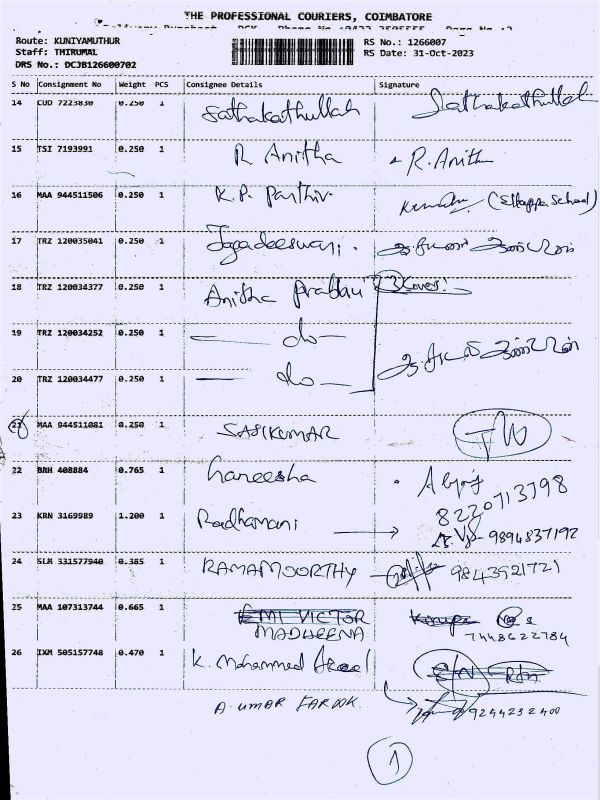 THE PROFESSIONAL COURIERS, COIMBATORE
Route: KUNIYAMUTHUR
Staff: THIRUMAL
DRS No.: DCJB126600702
RS No.: 1266007
RS Date: 31-Oct-2023
S No Consignment No Weight PCS Consignee Details Signature
14 CUD 7223830 0.250 1 Sathakathullah Sathakathullah
15 TSI 7193991 0.250 1 R Anitha R. Anitha
16 MAA 944511506 0.250 1 K.P. Parthiv (Ellappa School)
17 TRZ 120035041 0.250 1 Jagadeeswari
18 TRZ 120034377 0.250 1 Anitha Prabhu 3 Cover!
19 TRZ 120034252 0.250 1 — do —
20 TRZ 120034477 0.250 1 — do —
21 MAA 944511081 0.250 1 SASIKUMAR
22 BRH 408884 0.765 1 hareesha
8220713798
23 KRN 3169989 1.200 1 Radhamani 9894837192
24 SLM 331577940 0.385 1 RAMAMOORTHY 9843921721
25 MAA 107313744 0.665 1 VICTOR
MADHEENA 7448622784
26 IXM 505157748 0.470 1 K. Mohammed
A. UMAR FAROOK. 9244232400
1